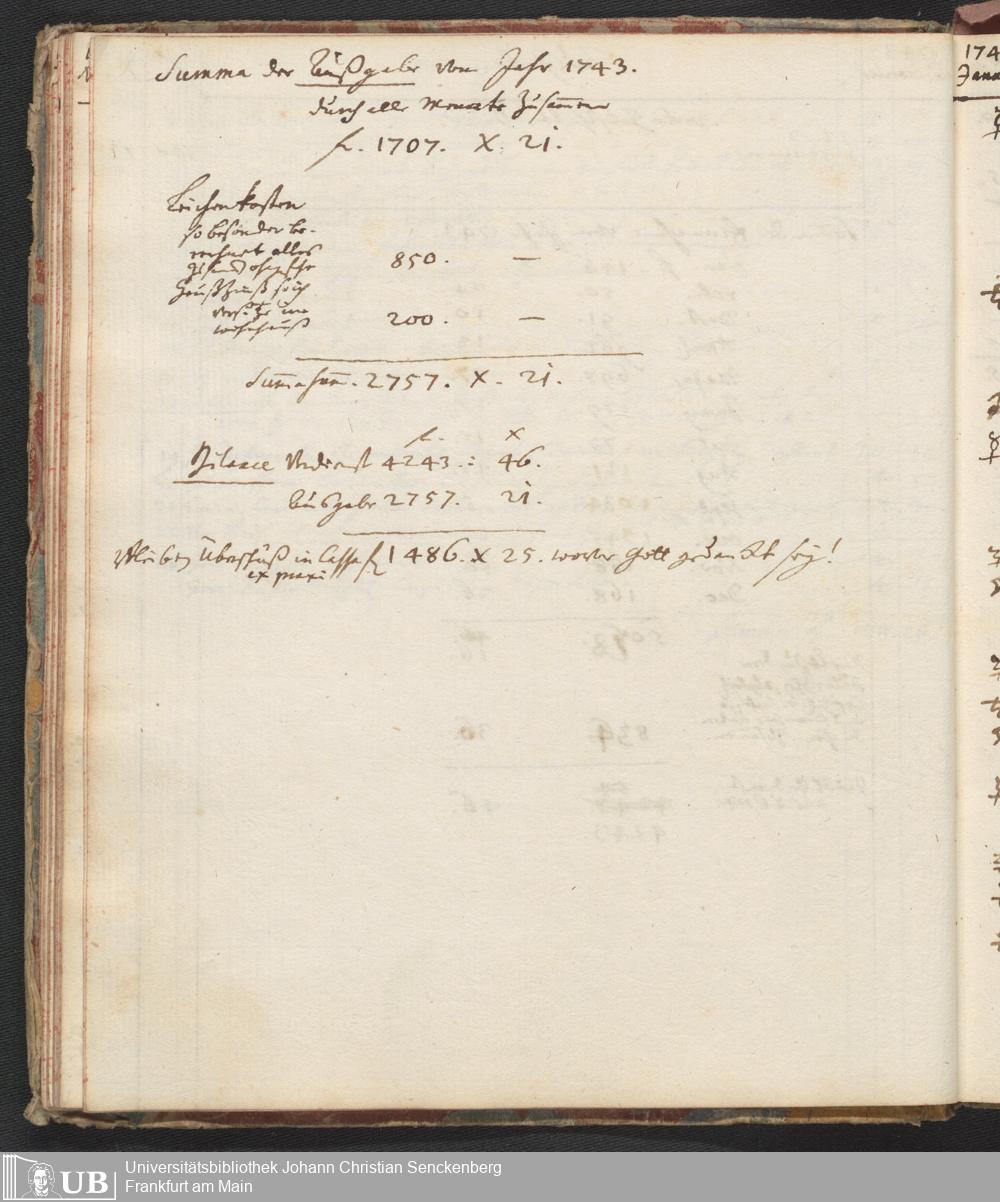 Summa der Außgabe vom Jahr 1743.
durch alle Monate Zusammen
fl. 1707. X. 21.
Leichenkosten
so besonder be-
rechnet alles 850. —
200. —
Summa summ. 2757. X. 21.
fl. x
Bilance Verdienst 4243 : 46.
Außgabe 2757. 21.
Bleibt Überschuß in Cassa fl 1486. x 25. wovor Gott gedanckt sey!
ex praxi
174
Janu
UB Universitätsbibliothek Johann Christian Senckenberg
Frankfurt am Main